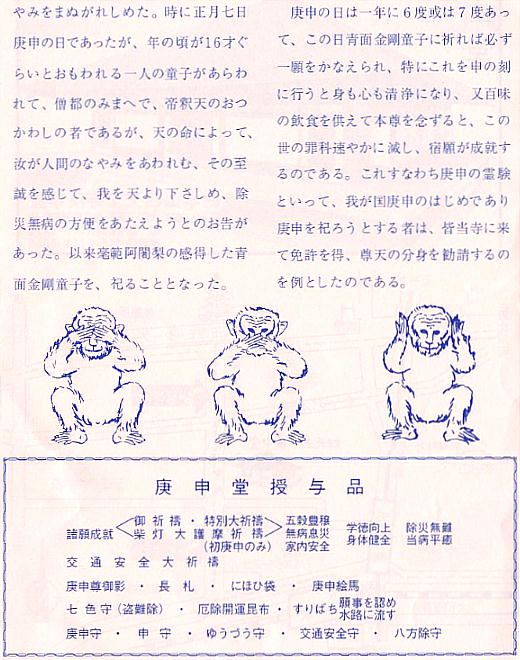 やみをまぬがれしめた。時に正月七日
庚申の日であったが、年の頃が16才ぐ
らいとおもわれる一人の童子があらわ
れて、僧都のみまへで、帝釈天のおつ
かわしの者であるが、天の命によって、
汝が人間のなやみをあわれむ、その至
誠を感じて、我を天より下さしめ、除
災無病の方便をあたえようとのお告が
あった。以来毫範阿闍梨の感得した青
面金剛童子を、祀ることとなった。
庚申の日は一年に6度或は7度あっ
て、この日青面金剛童子に祈れば必ず
一願をかなえられ、特にこれを申の刻
に行うと身も心も清浄になり、又百味
の飲食を供えて本尊を念ずると、この
世の罪科速やかに滅し、宿願が成就す
るのである。これすなわち庚申の霊験
といって、我が国庚申のはじめであり
庚申を祀ろうとする者は、皆当寺に来
て免許を得、尊天の分身を勧請するの
を例としたのである。
庚申堂授与品
諸願成就
御祈禱・特別大祈禱
柴灯大護摩祈禱
(初庚申のみ)
五穀豊穣
無病息災
家内安全
学徳向上 除災無難
身体健全 当病平癒
交通安全大祈禱
庚申尊御影・長札・にほひ袋・庚申絵馬
七色守(盗難除)・厄除開運昆布・すりばち 願事を認め
水路に流す
庚申守・申守・ゆうづう守・交通安全守・八方除守